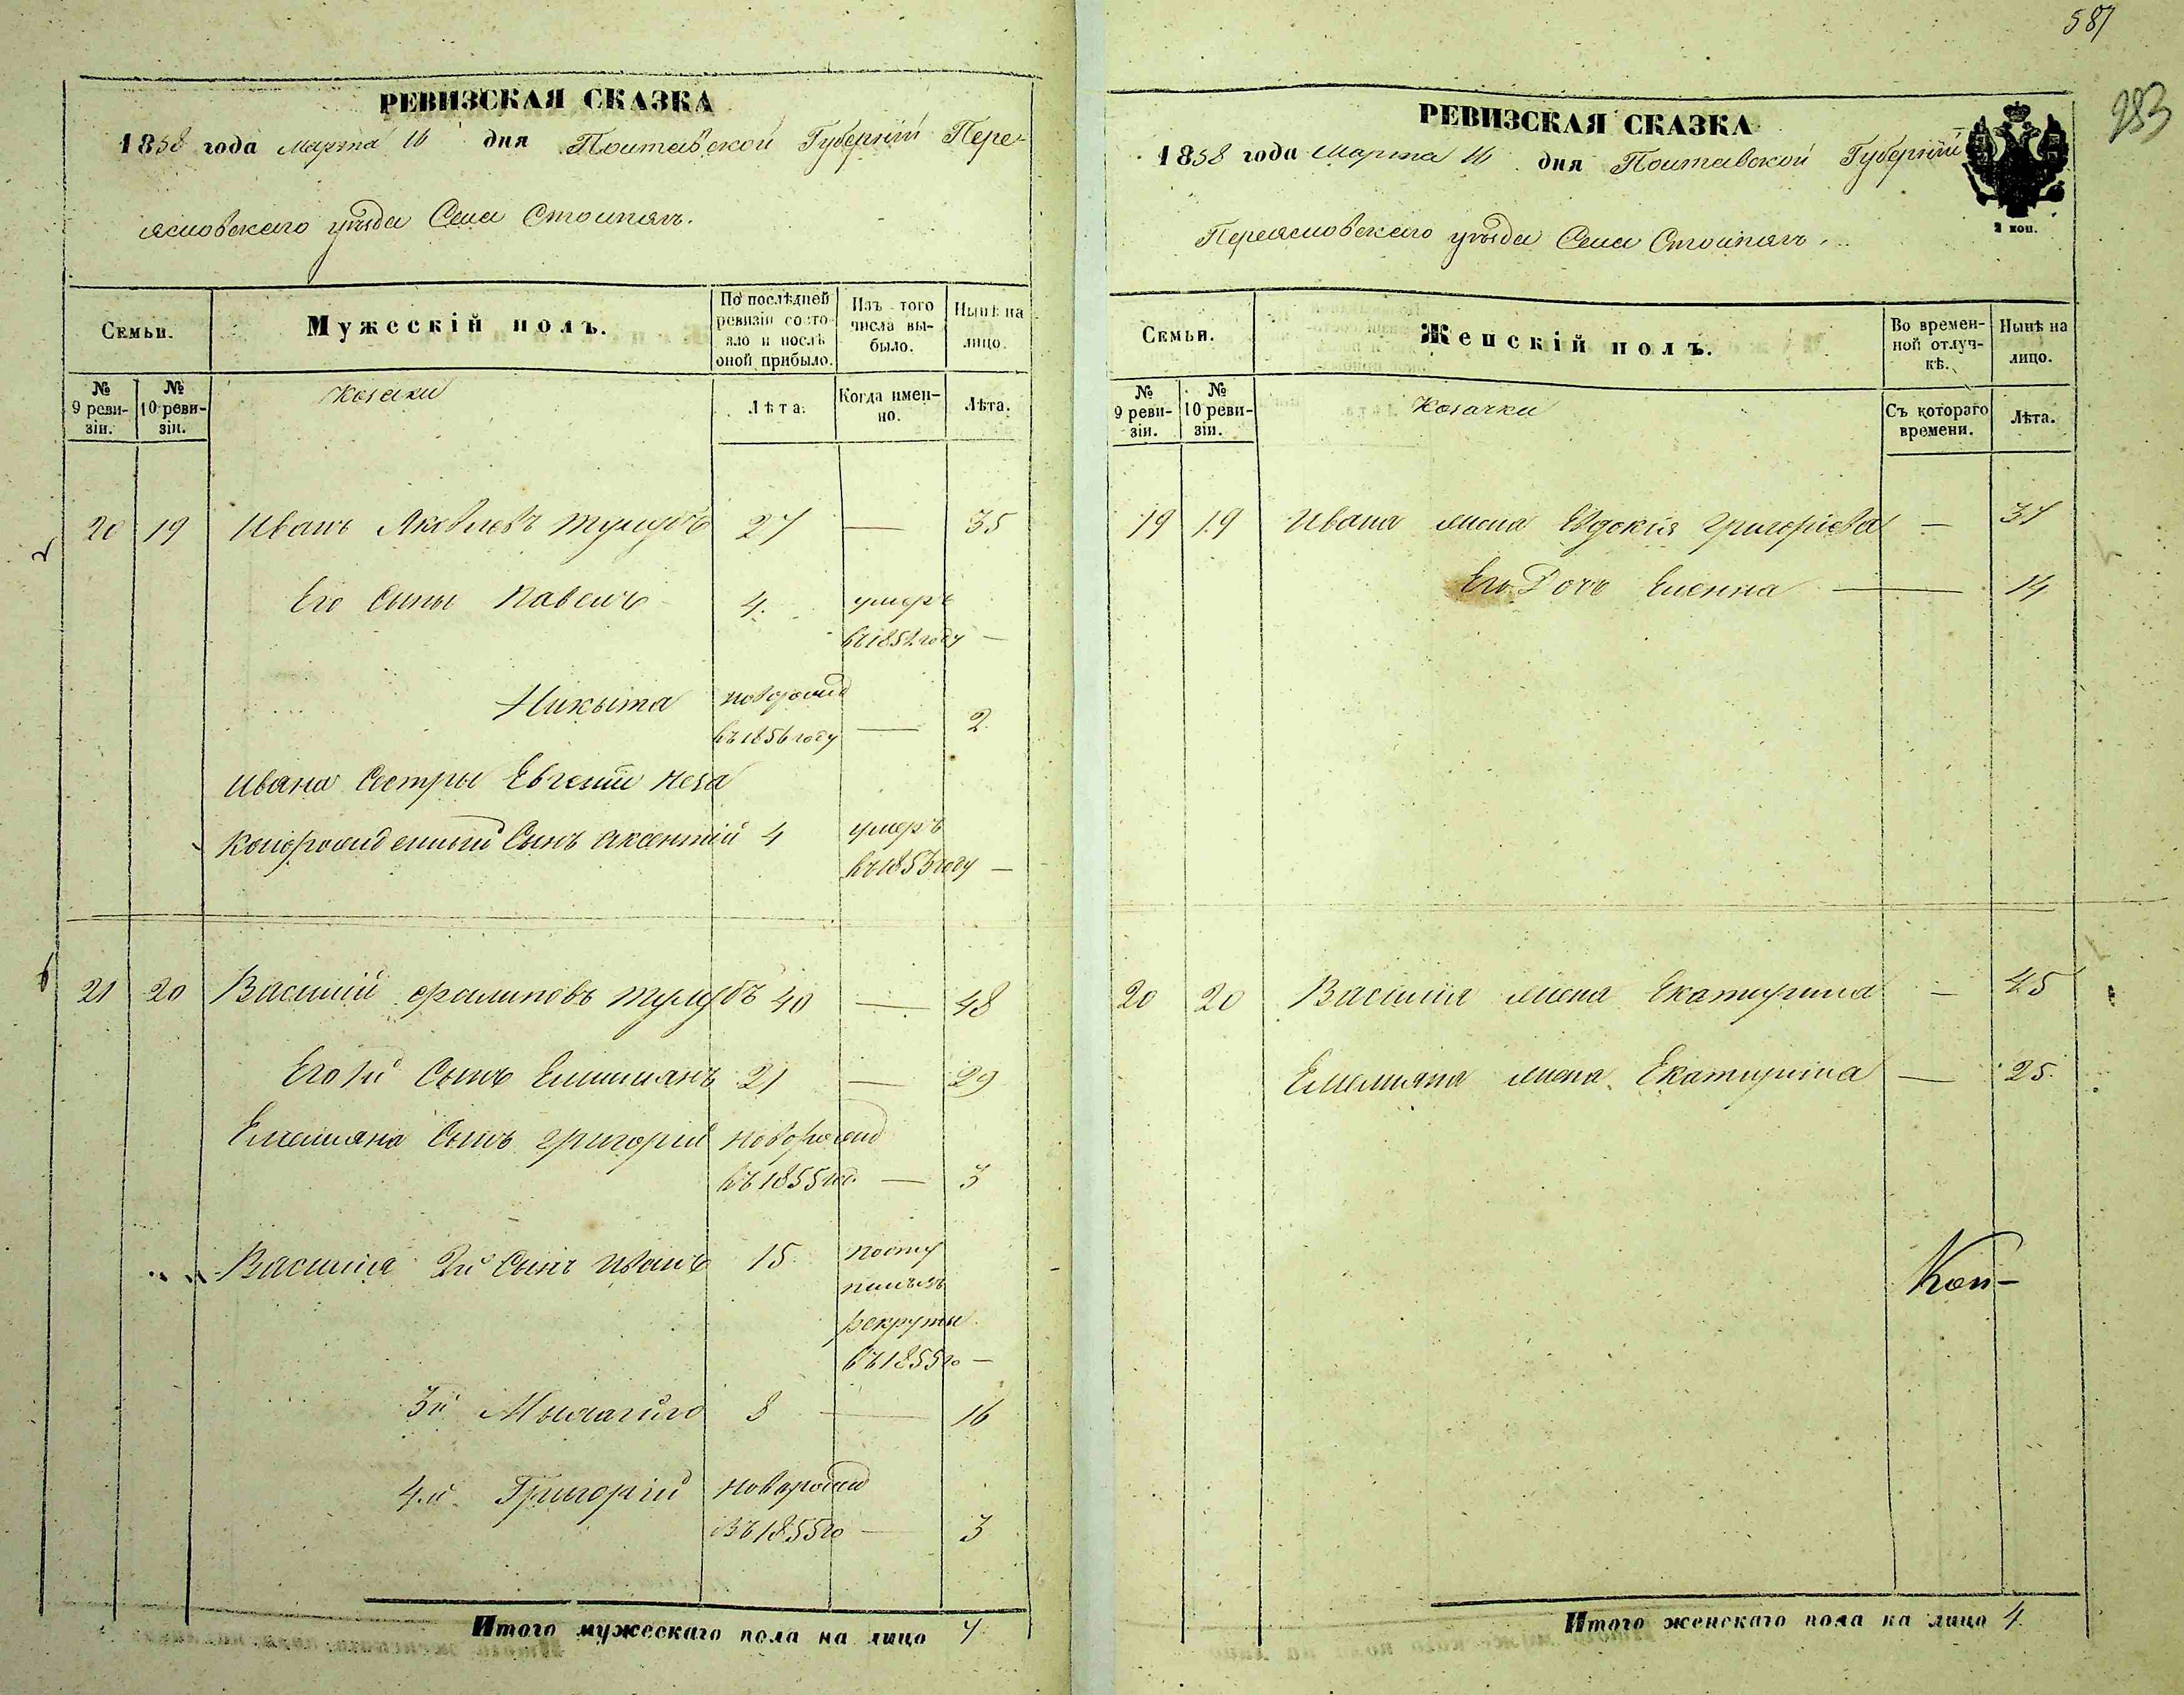 587
283
РЕВИЗСКАЯ СКАЗКА
1858 года Марта 16 дня Полтавской Губерніи Пере-
яславскаго уѣзда Села Столпягъ.
Семьи.
Мужескій полъ.
По послѣдней ревизіи состояло и послѣ оной прибыло.
Изъ того числа выбыло.
Нынѣ на лицо.
№ 9 ревизіи.
№ 10 ревизіи.
Козаки
Лѣта.
Когда именно.
Лѣта.
20 19 Иванъ Яковлевъ Тулубъ 27 — 35
Его Сыны Павелъ 4. умеръ
въ 1852 году —
Никыта риворожд
въ 1856 году — 2
Ивана Сестры Евгеніи Неза
конорожденный Сынъ Аксентій 4 умеръ
въ 1853 году —
21 20 Василій Фалиповъ Тулубъ 40 — 48
Его 1й Сынъ Емилианъ 21 — 29
Емелиана Сынъ Григорій новорожд
въ 1855 год — 3
Василія 2й Сынъ Иванъ 15 посту
пилъ въ
рекруты
въ 1855 го —
3й Мыхагйло 8 — 16
4й Григорій новорожд
въ 1855 го — 3
Итого мужескаго пола на лицо 7
РЕВИЗСКАЯ СКАЗКА
1858 года Марта 16 дня Полтавской Губерніи
Переяславскаго уѣзда Села Столпягъ.
2 коп.
Семьи.
Женскій полъ.
Во временной отлучкѣ.
Нынѣ на лицо.
№ 9 ревизіи.
№ 10 ревизіи.
Козачки
Съ котораго времени.
Лѣта.
19 19 Ивана жена Евдокія Григоріева — 37
Его Дочь Еленна — 14
20 20 Василія жена Екатирина — 45
Емелиана жена Екатирина — 25
Коп-
Итого женскаго пола на лицо 4